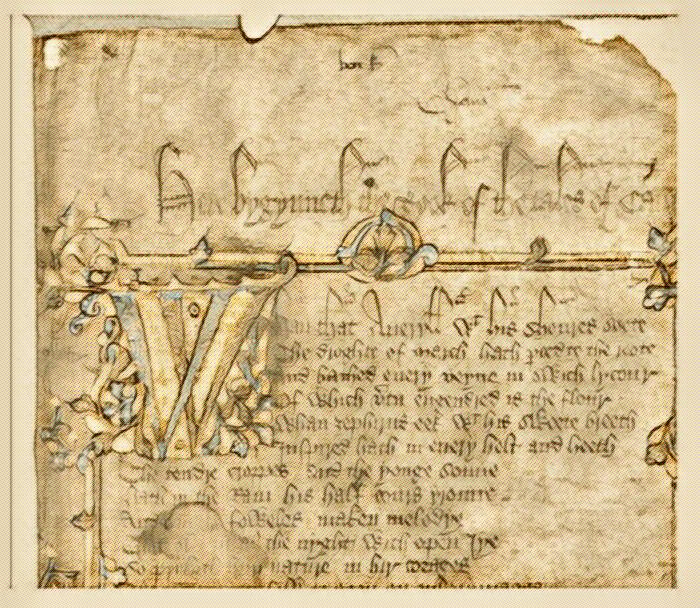 Here bygynneth the Book of the tales of Ca
Whan that Aueryll wt his shoures soote
The droghte of march hath perced to the roote
And bathed euery veyne in swich lycour
Of which vertu engendred is the flour
Whan zephirus eek wt his sweete breeth
Inspired hath in euery holt and heeth
The tendre croppes and the yonge sonne
Hath in the Ram his half cours yronne
And foweles maken melodye
the nyght with open Iye
So priketh hem nature in hir corages